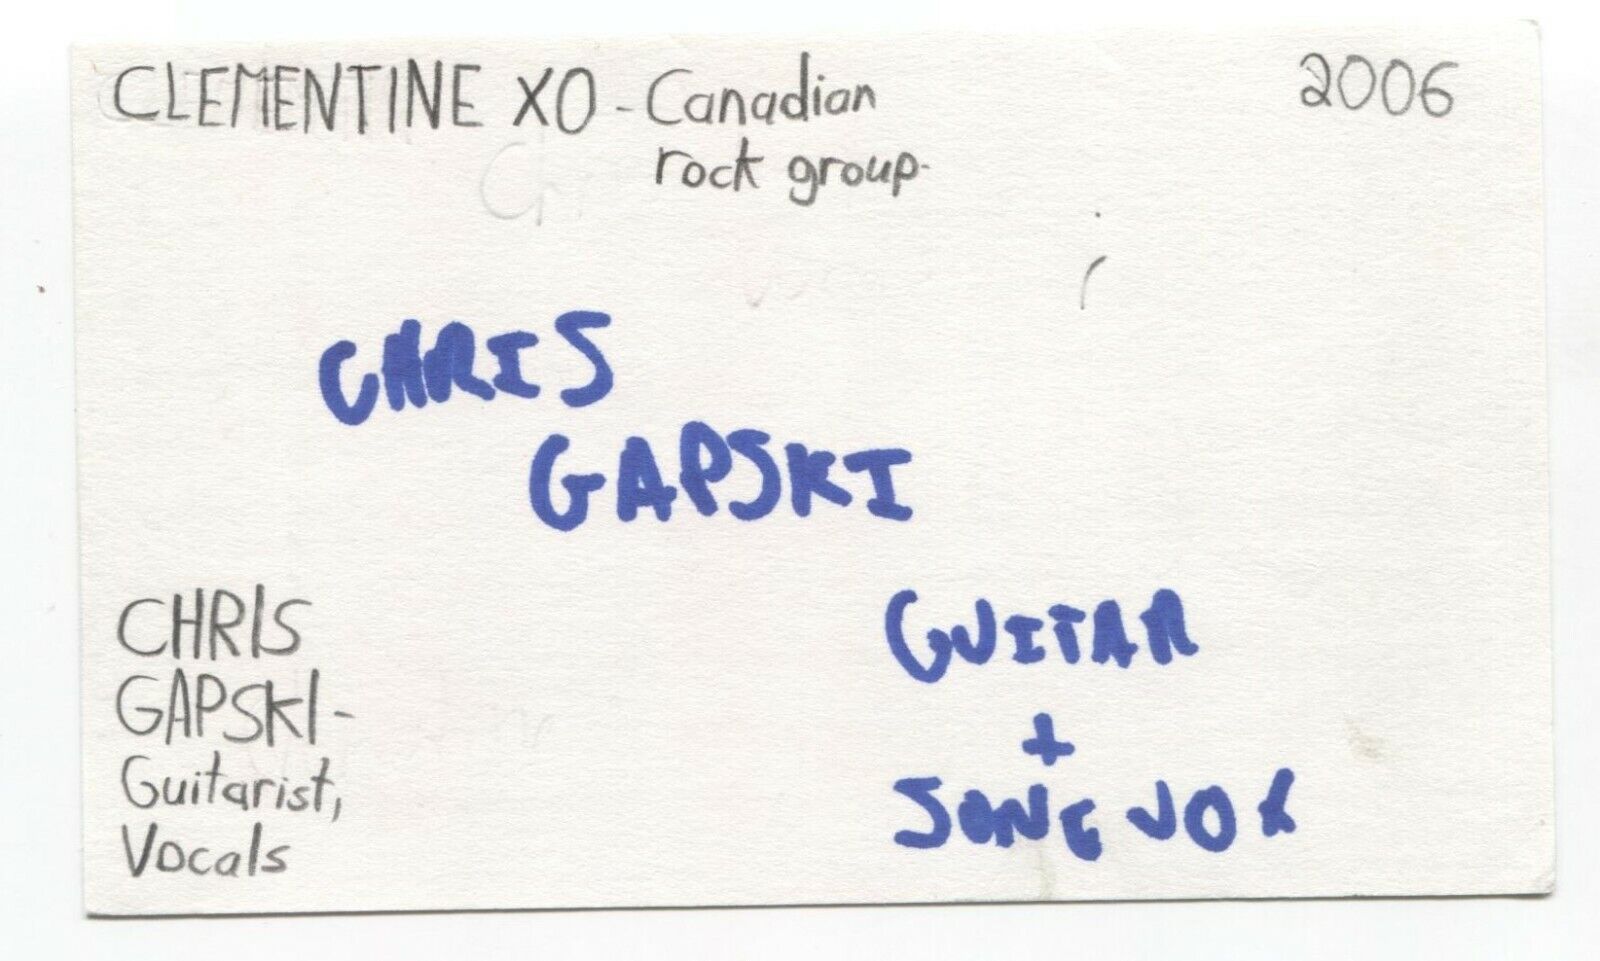 CLEMENTINE XO - Canadian
rock group.
2006
CHRIS
GAPSKI
CHRIS
GAPSKI -
Guitarist,
Vocals
GUITAR
+
SOME VOX